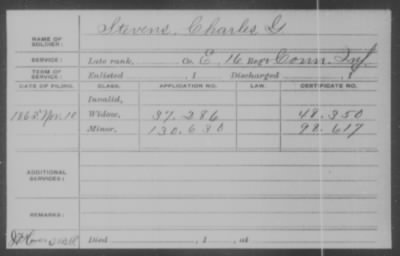 NAME OF SOLDIER: Stevens, Charles G.
SERVICE: Late rank, Co. E, 16 Reg't Conn. Inf.
TERM OF SERVICE: Enlisted , 1 Discharged , 1
DATE OF FILING. CLASS. APPLICATION NO. LAW. CERTIFICATE NO.
Invalid,
1865 Nov. 10 Widow, 97.286 48.350
Minor, 130.690 92.617
ADDITIONAL SERVICES:
REMARKS:
Died , 1 , at